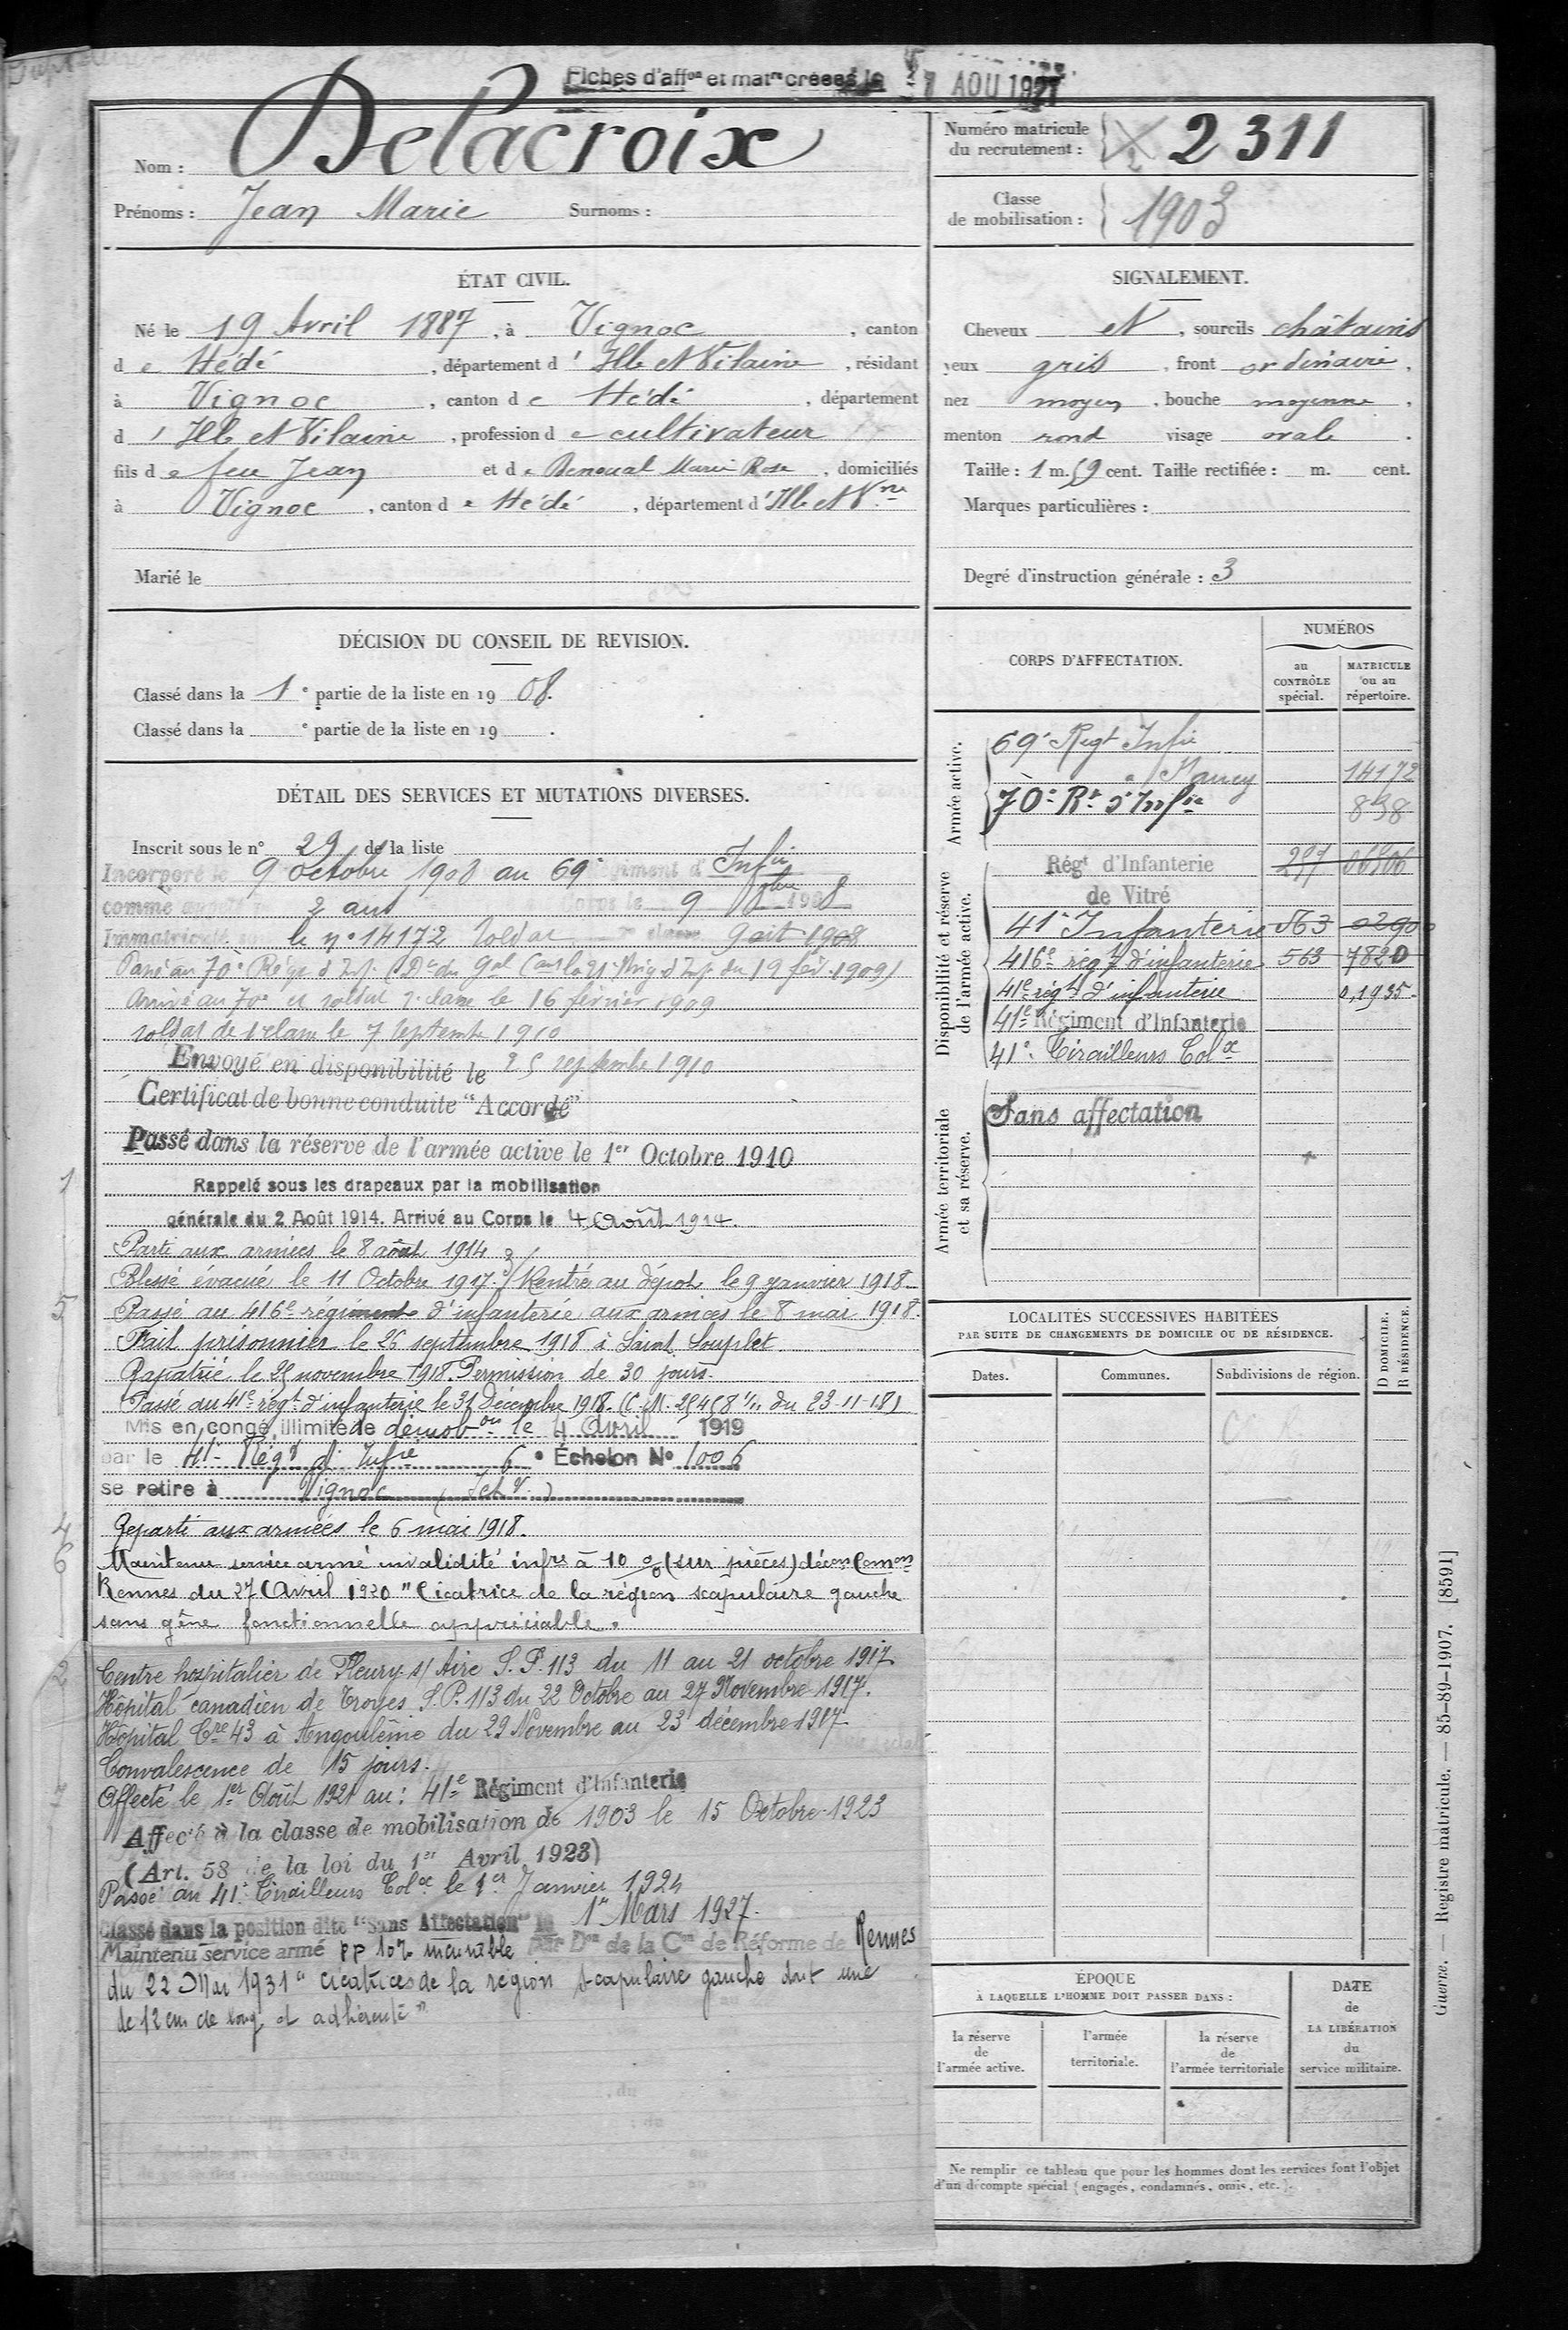 Fiches d'aff<sup>on</sup> et mat<sup>re</sup> créées le 7 AOU 1927
Nom : Delacroix
Prénoms : Jean Marie Surnoms :
Numéro matricule du recrutement : 2311
Classe de mobilisation : 1903
ÉTAT CIVIL.
Né le 19 Avril 1887, à Vignoc, canton
de Hédé, département d'Ille et Vilaine, résidant
à Vignoc, canton de Hédé, département
d'Ille et Vilaine, profession de cultivateur
fils de feu Jean et de Benoual Marie Rose, domiciliés
à Vignoc, canton de Hédé, département d'Ille et V<sup>ne</sup>
Marié le
SIGNALEMENT.
Cheveux et, sourcils châtains
yeux gris, front ordinaire,
nez moyen, bouche moyenne,
menton rond visage ovale.
Taille : 1 m. 59 cent. Taille rectifiée : m. cent.
Marques particulières :
Degré d'instruction générale : 3
DÉCISION DU CONSEIL DE REVISION.
Classé dans la 1<sup>e</sup> partie de la liste en 1908.
Classé dans la <sup>e</sup> partie de la liste en 19 .
DÉTAIL DES SERVICES ET MUTATIONS DIVERSES.
Inscrit sous le n° 29 de la liste
Incorporé le 9 octobre 1908 au 69<sup>e</sup> Régiment d'Inf<sup>ie</sup>
comme appelé 2 ans Corps le 9 8<sup>bre</sup> 1908
Immatriculé le n° 14172 soldat 2<sup>e</sup> classe 9 oct 1908
Passé au 70<sup>e</sup> Rég<sup>t</sup> d'Inf. (D<sup>on</sup> du G<sup>al</sup> C<sup>ant</sup> la 21<sup>e</sup> Brig d'Inf. du 19 fév. 1909)
Arrivé au 70<sup>e</sup> et soldat 2<sup>e</sup> classe le 16 février 1909
soldat de 1<sup>e</sup> classe le 7 septembre 1910
Envoyé en disponibilité le 25 septembre 1910
Certificat de bonne conduite "Accordé"
Passé dans la réserve de l'armée active le 1<sup>er</sup> Octobre 1910
1
Rappelé sous les drapeaux par la mobilisation
générale du 2 Août 1914. Arrivé au Corps le 4 Août 1914.
Parti aux armées le 8 août 1914
3
Blessé évacué le 11 Octobre 1917. Rentré au dépôt le 9 janvier 1918
5
Passé au 416<sup>e</sup> régiment d'infanterie aux armées le 8 mai 1918.
Fait prisonnier le 26 septembre 1918 à Saint Souplet
Rapatrié le 25 novembre 1918. Permission de 30 jours.
Passé au 41<sup>e</sup> rég<sup>t</sup> d'infanterie le 31 Décembre 1918. (C.M. 25458 1/11 du 23-11-18)
Mis en congé illimité de démob<sup>on</sup> le 4 Avril 1919
par le 41<sup>e</sup> Rég<sup>t</sup> d'Inf<sup>ie</sup> 6<sup>e</sup> Échelon N° 1006
se retire à Vignoc (I et V.)
4
Reparti aux armées le 6 mai 1918.
6
Maintenu service armé invalidité inf<sup>re</sup> à 10 % (sur pièces) déc<sup>on</sup> Com<sup>on</sup>
Rennes du 27 Avril 1920 "Cicatrice de la région scapulaire gauche
sans gêne fonctionnelle appréciable.
2
Centre hospitalier de Fleury s/ Aire S.P. 113 du 11 au 21 octobre 1917
Hôpital canadien de Troyes S.P. 113 du 22 Octobre au 27 Novembre 1917.
Hôpital C<sup>re</sup> 43 à Angoulême du 29 Novembre au 23 décembre 1917
Convalescence de 15 jours.
Affecté le 1<sup>er</sup> Août 1921 au : 41<sup>e</sup> Régiment d'Infanterie
Affecté à la classe de mobilisation de 1903 le 15 Octobre 1923
(Art. 58 de la loi du 1<sup>er</sup> Avril 1923)
Passé au 41<sup>e</sup> Tirailleurs Col<sup>x</sup> le 1<sup>er</sup> Janvier 1924
Classé dans la position dite "Sans Affectation" le 1<sup>er</sup> Mars 1927.
Maintenu service armé pp 10% incurable par D<sup>on</sup> de la C<sup>on</sup> de Réforme de Rennes
du 22 Mai 1931 "cicatrices de la région scapulaire gauche dont une
de 12 cm de long et adhérente"
CORPS D'AFFECTATION.
NUMÉROS
au CONTRÔLE spécial.
MATRICULE ou au répertoire.
Armée active.
69<sup>e</sup> Reg<sup>t</sup> Inf<sup>ie</sup>
à Nancy 14172
70<sup>e</sup> R<sup>t</sup> d'Inf<sup>ie</sup> 838
Disponibilité et réserve de l'armée active.
Rég<sup>t</sup> d'Infanterie 297 06906
de Vitré
41<sup>e</sup> Infanterie 563
416<sup>e</sup> rég<sup>t</sup> d'infanterie 563 7820
41<sup>e</sup> rég<sup>t</sup> d'infanterie 0,1935
41<sup>e</sup> Régiment d'Infanterie
41<sup>e</sup> Tirailleurs Col<sup>x</sup>
Armée territoriale et sa réserve.
Sans affectation
LOCALITÉS SUCCESSIVES HABITÉES
PAR SUITE DE CHANGEMENTS DE DOMICILE OU DE RÉSIDENCE.
D DOMICILE.
R RÉSIDENCE.
Dates. Communes. Subdivisions de région.
ÉPOQUE
À LAQUELLE L'HOMME DOIT PASSER DANS :
la réserve de l'armée active.
l'armée territoriale.
la réserve de l'armée territoriale
DATE de LA LIBÉRATION du service militaire.
Ne remplir ce tableau que pour les hommes dont les services font l'objet
d'un décompte spécial (engagés, condamnés, omis, etc.).
Guerre. — Registre matricule. — 85-89-1907. [8591]